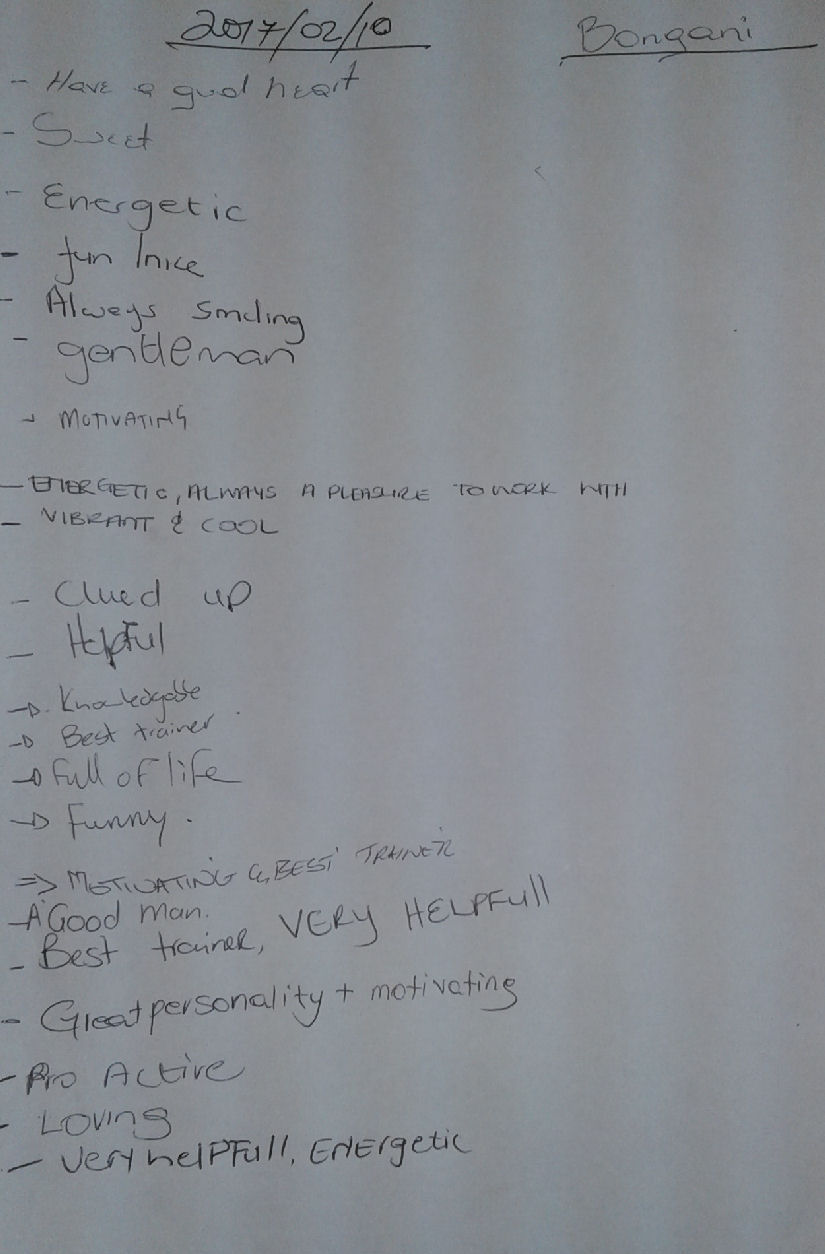 2017/02/10 Bongani
- Have a good heart
- Sweet
- Energetic
- fun /nice
- Always smiling
- gentleman
- MOTIVATING
- ENERGETIC, ALWAYS A PLEASURE TO WORK WITH
- VIBRANT & COOL
- Clued up
- Helpful
→ Knowledgable
→ Best trainer.
→ Full of life
→ Funny.
=> MOTIVATING & BEST TRAINER
- A Good man.
- Best trainer, VERY HELPFull
- Great personality + motivating
- Pro Active
- Loving
- Very helPFull, ENErgetic